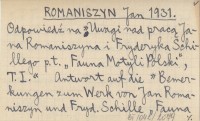 ROMANISZYN Jan 1931.
Odpowiedź na „Uwagi nad pracą Ja-
na Romaniszyna i Fryderyka Schi-
llego p.t. „Fauna Motyli Polski",
T. I." Antwort auf die „Bemer-
kungen zum Werk von Jan Roma-
niszyn und Fryd. Schille „Fauna